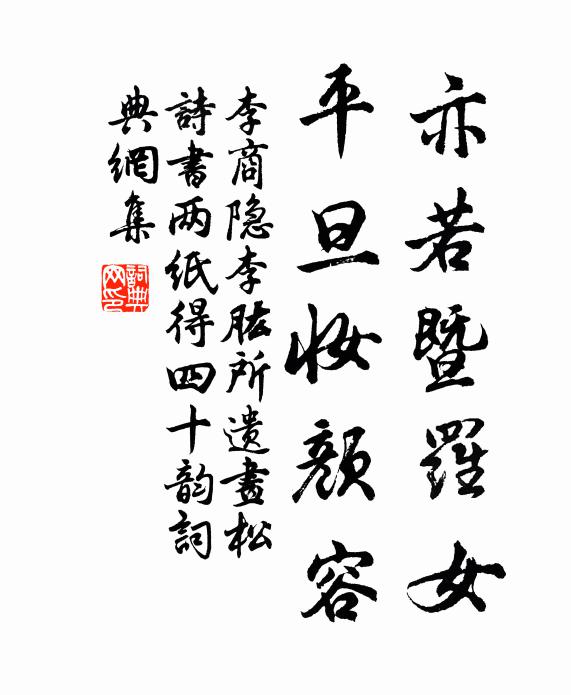 亦若暨羅女
平旦妝顏容
李商隐李肱所遗畫松
詩書两紙得四十韵詞
典網集
詞典网印